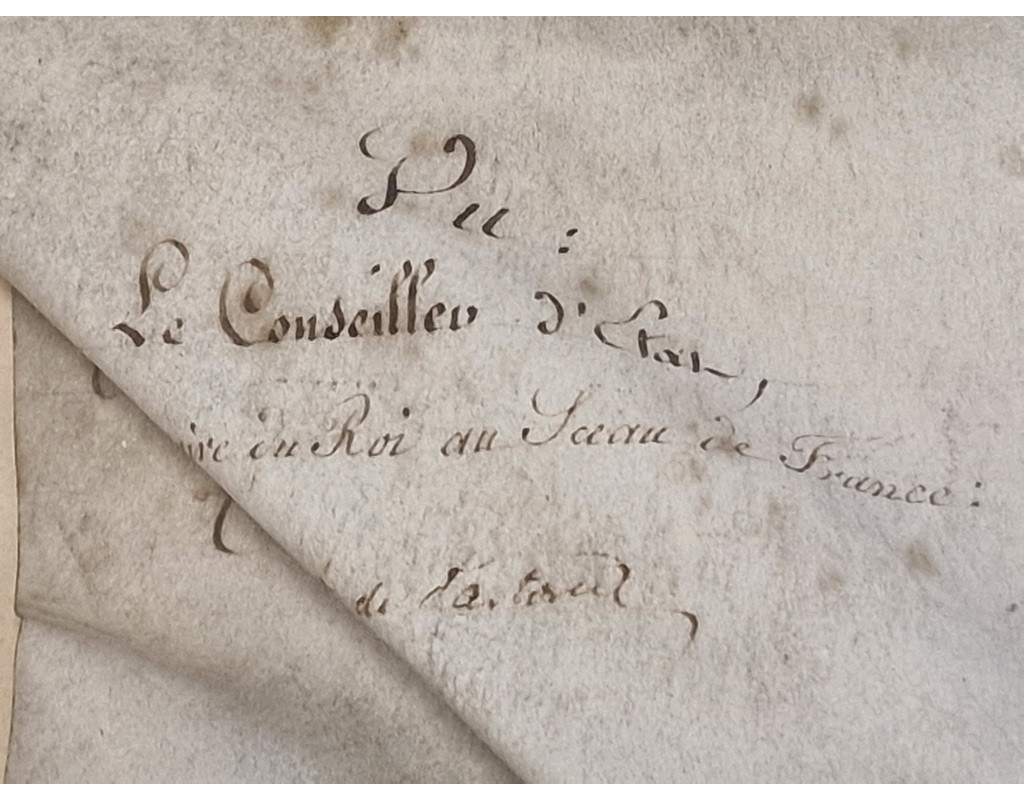 Vu :
Le Conseiller d'Etat,
ire du Roi au Sceau de France :
de Pastoret